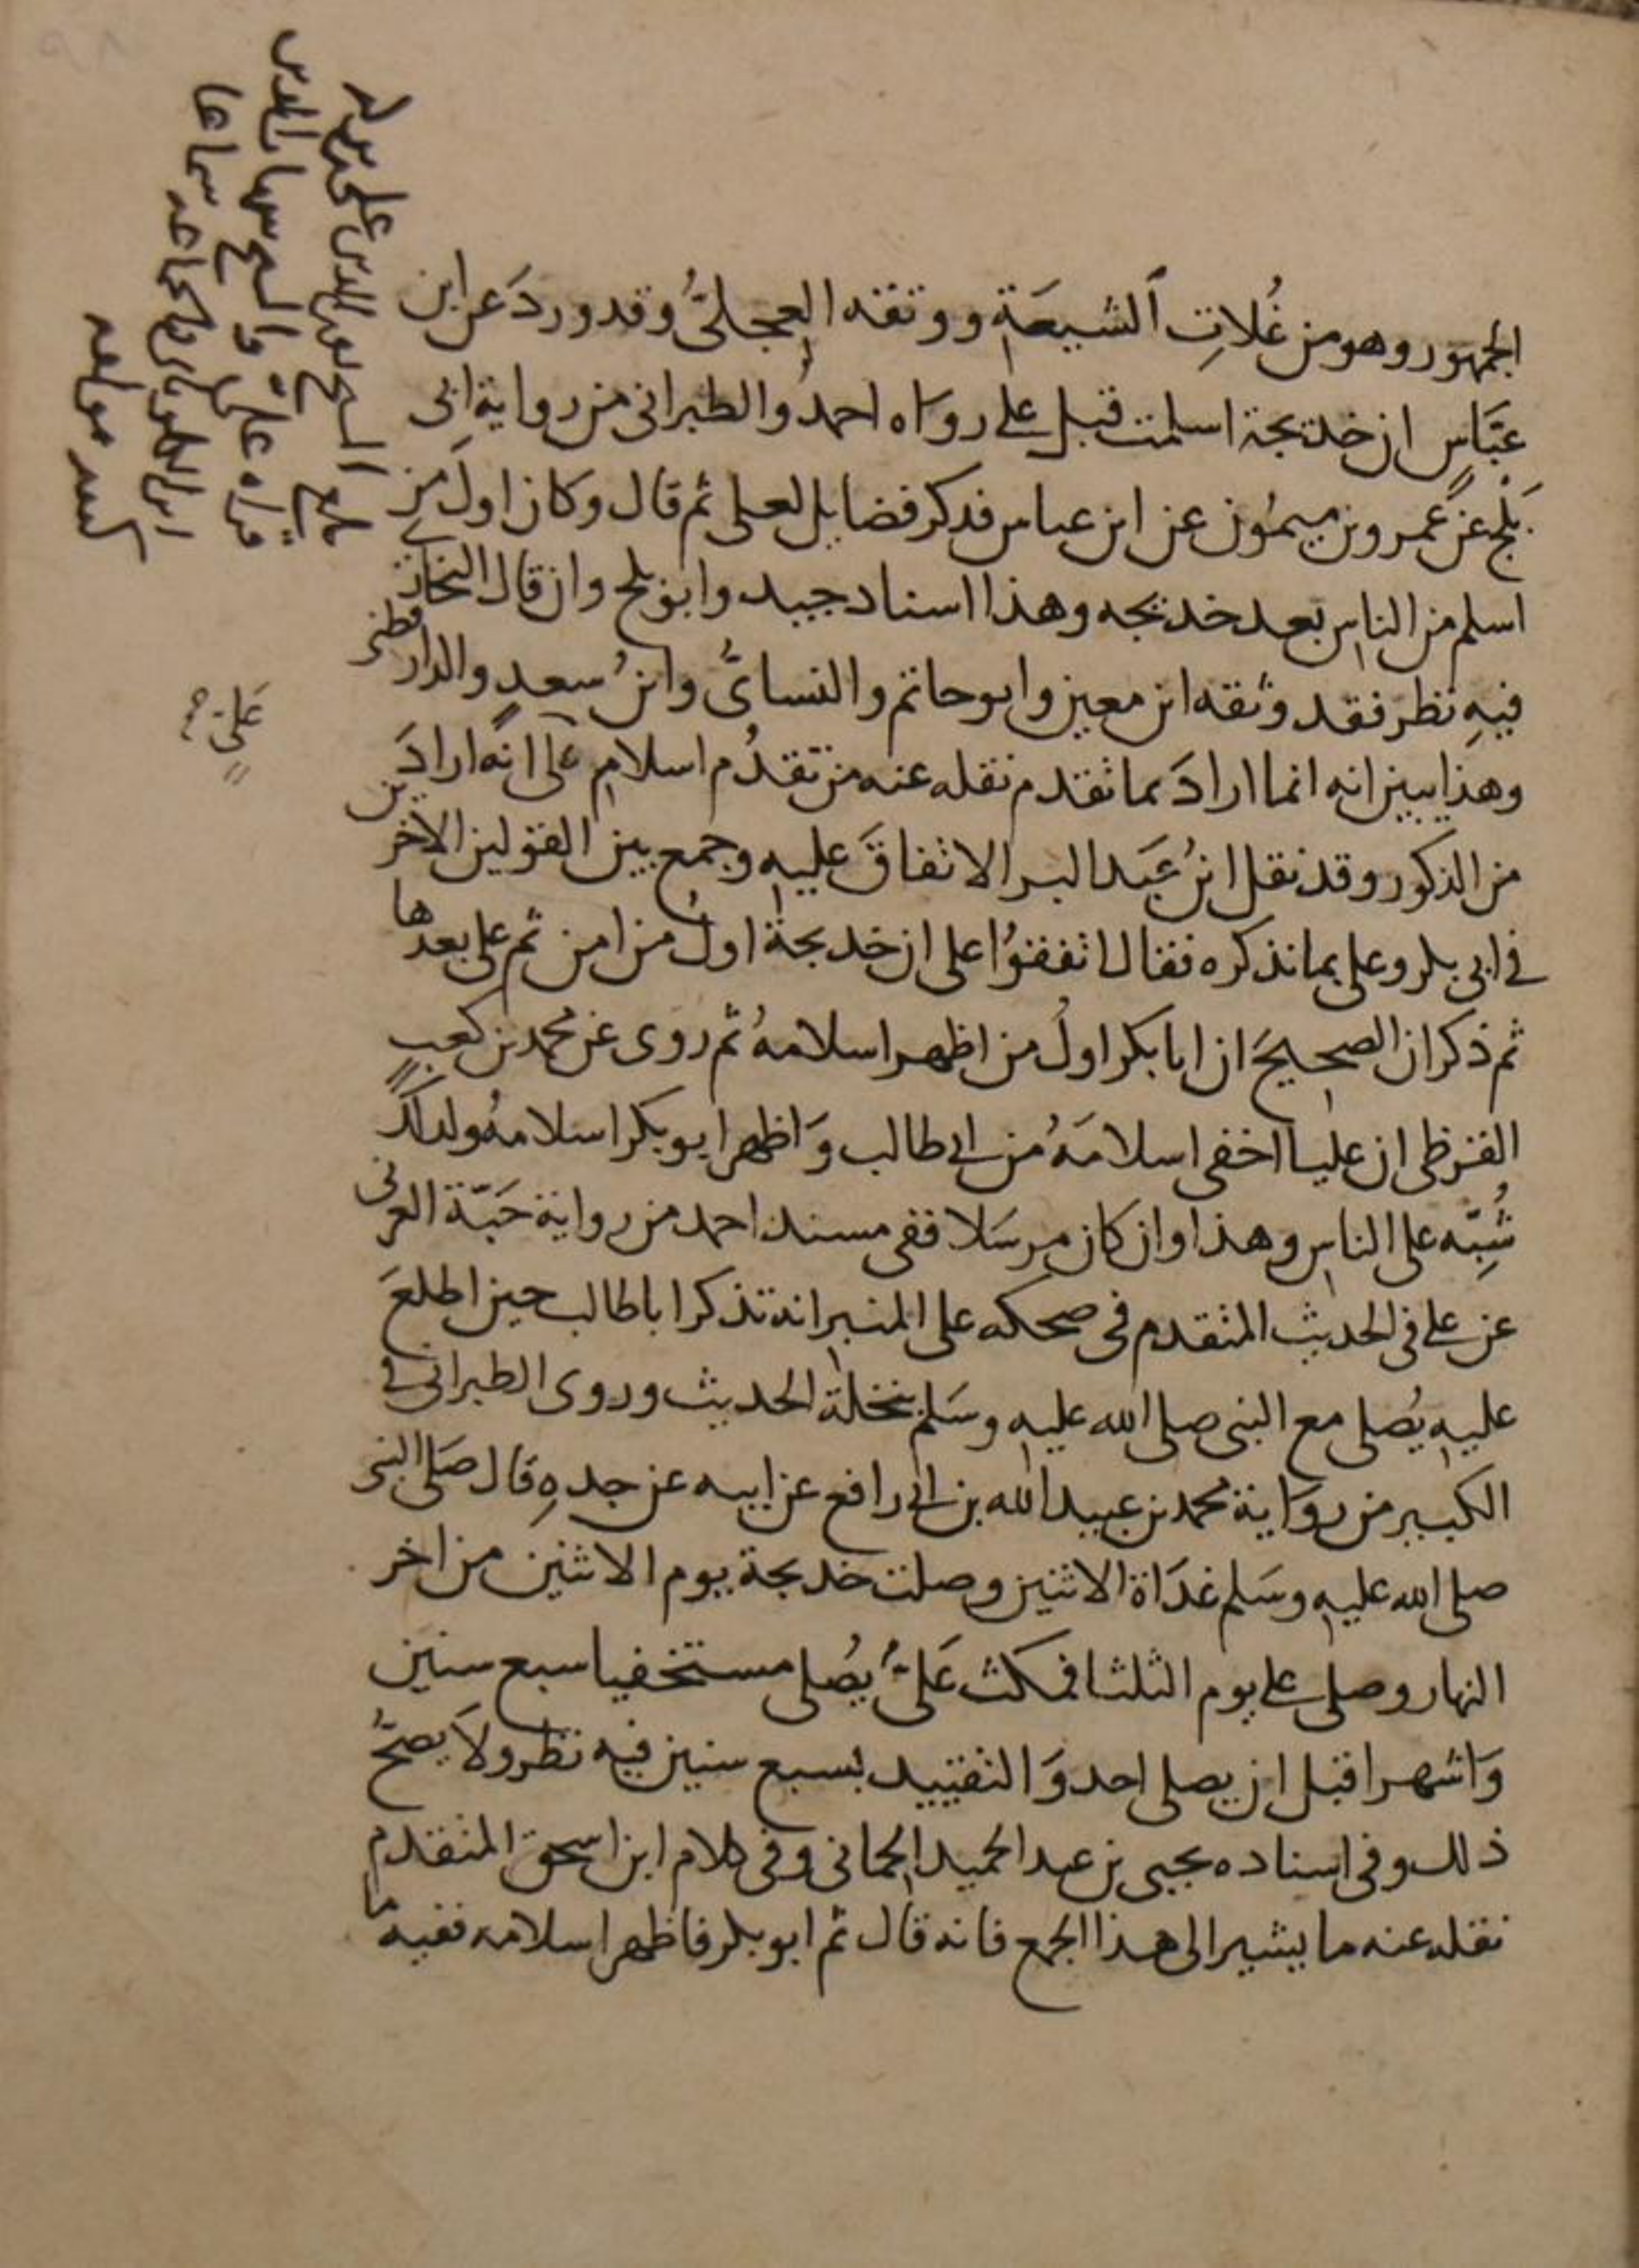 الجمهور وهو من غُلاتِ الشيعَةِ ووثقه العجليُّ وقد وردَ عن ابن
عبَّاسٍ ان خديجة اسلمت قبل على رواه احمدُ والطبرانى من رواية ابى
بَلْج عن عَمرو بن ميمُون عن ابن عباس فذكر فضايل لعلى ثم قال وكان اول من
اسلم من الناس بعد خديجه وهذا اسناد جيد وابو بلج وان قال البخارى
فيهِ نظر فقد وثقه ابن معين وابو حاتم والنساىُّ وابنُ سعدٍ والدارقطنى
وهذا يبين انه انما ارادَ بما تقدم نقله عنه من تقدُم اسلام على انه ارادَ
من الذكور وقد نقل ابنُ عبَد البر الاتفاقَ عليه وجمع بين القولين الاخرين
فى ابى بكر وعلى بما نذكره فقال اتفقوُا على ان خديجة اولُ من امن ثم على بعدها
ثم ذكر ان الصحيحَ ان ابا بكر اولُ من اظهر اسلامهُ ثم روى عن محمد بن كعبٍ
القرظى ان عليا اخفى اسلامَهُ من ابى طالب وَاظهر ابو بكر اسلامهُ ولذلك
شُبِّه على الناس وهذا وان كان مرسَلا ففى مسند احمد من رواية حَبّة العرنى
عن على فى الحديث المتقدم فى ضحكه على المنبر انه تذكر ابا طالب حين اطلعَ
عليه يُصلى مع النبى صلى الله عليه وسَلم بنخلة الحديث وروى الطبرانى فى
الكبير من روَاية محمد بن عبيد الله بن ابى رافع عن ابيه عن جدهِ قال صَلى النبى
صلى الله عليه وسَلم غدَاة الاثنين وصلت خديجة يوم الاثنين من اخر
النهار وصلى على يوم الثلثا فمكث عَلىٌّ يُصلى مستخفيا سبع سنين
وَاشهرا قبل ان يصلى احد وَالتقييد بسبع سنين فيه نظر ولاَ يصحُّ
ذلك وفى اسناده يحيى بن عبد الحميد الحمانى وفى كلام ابن اسحق المتقدم
نقله عنه ما يشير الى هذا الجمع فانه قال ثم ابو بكر فاظهر اسلامه ففيه ما
عَلىٍ